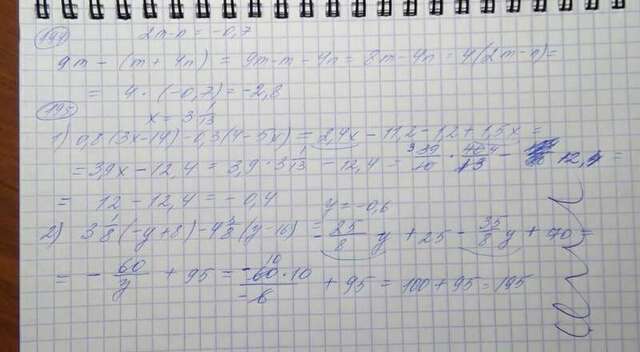 194 2m-n = -0,7
9m - (m + 4n) = 9m-m-4n = 8m-4n = 4(2m-n)=
= 4 · (-0,7) = -2,8
195 x = 3 1/13
1) 0,8(3x-14)-0,3(4-5x) = 2,4x - 11,2-1,2 + 1,5x =
= 3,9x - 12,4 = 3,9 · 3 1/13 - 12,4 = 39/10 · 40/13 - 12,4 =
= 12 - 12,4 = -0,4
y = -0,6
2) 3 1/8 (-y+8) - 4 3/8 (y-16) = - 25/8 y + 25 - 35/8 y + 70 =
= - 60/y + 95 = -60·10/-6 + 95 = 100 + 95 = 195